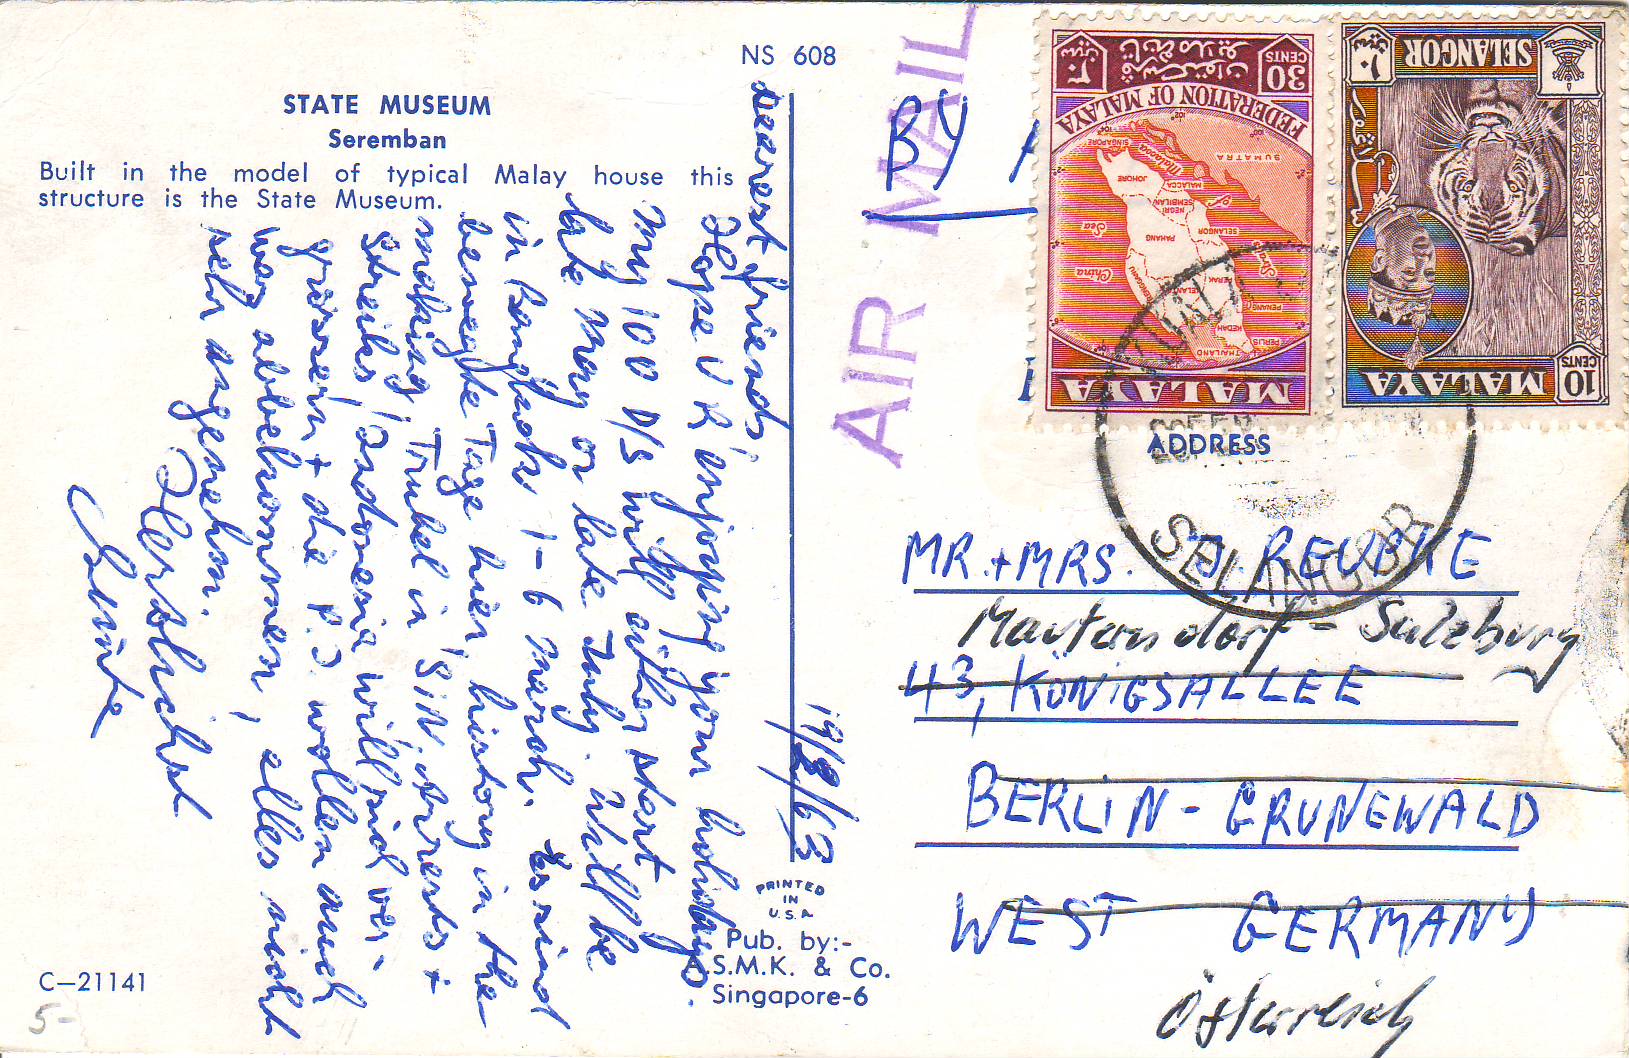 NS 608
STATE MUSEUM
Seremban
Built in the model of typical Malay house this
structure is the State Museum.
19/2/63
Dearest friends
Hope U R enjoying your holidays.
My 100 D/S will either start
late May or late July. Will be
in Bangkok 1-6 March. Es sind
bewegte Tage hier, "history in the
making", Trubel in SIN, arrests +
streiks, Indonesia will sich ver-
grössern + die P.I. wollen auch
was abbekommen, alles nicht
sehr angenehm.
Herzlichst
C-21141
5-
PRINTED
IN
U.S.A.
Pub. by:-
S.M.K. & Co.
Singapore-6
AIR MAIL
BY
MALAYA
FEDERATION OF MALAYA
30
CENTS
THAILAND
PERLIS
KEDAH
PENANG
PERAK
KELANTAN
TRENGGANU
PAHANG
SELANGOR
NEGRI
SEMBILAN
MALACCA
JOHORE
SINGAPORE
SUMATRA
China
Sea
Malacca
MALAYA
10
CENTS
SELANGOR
ADDRESS
SELANGOR
MR. + MRS. D. REUBKE
43, KÖNIGSALLEE
BERLIN - GRUNEWALD
WEST GERMANY
Österreich